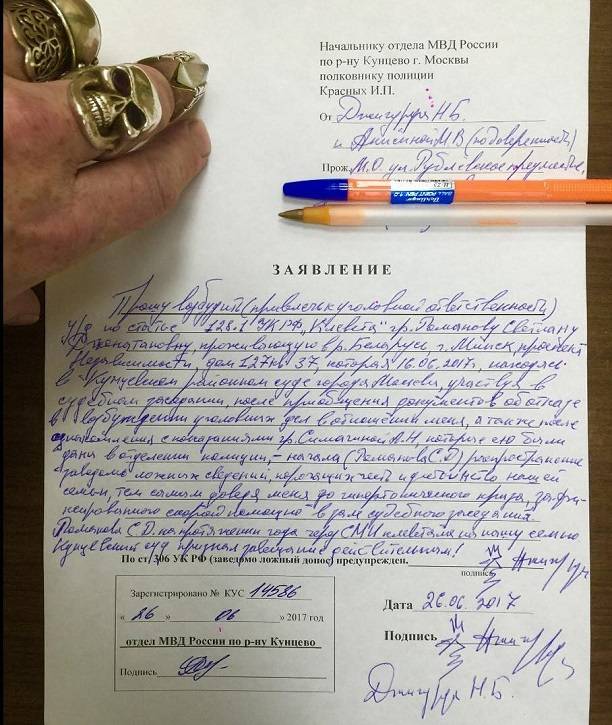 Начальнику отдела МВД России
по р-ну Кунцево г. Москвы
полковнику полиции
Красных И.П.
От Джигурда Н.Б.
и Анисиной М.В (по доверенности)
Прож. М.О. ул. Рублевское предместье,
ЗАЯВЛЕНИЕ
Прошу возбудить (привлечь к уголовной ответственности)
у/д по статье 128.1 УК РФ „Клевета" гр. Романову Светлану
проживающую в р. Беларусь г. Минск, проспект
Независимости, дом 127 кв 37, которая 16.06.2017г, находясь
в Кунцевском районном суде города Москвы, участвуя в
судебном заседании, после приобщения документов об отказе
в возбуждении уголовных дел в отношении меня, а также после
ознакомления с показаниями гр. Симагиной А.Н, которые ею были
даны в отделении полиции, – начала (Романова С.Д) распространение
заведомо ложных сведений, порочащих честь и достоинство нашей
семьи, тем самым доведя меня до гипертонического криза, зафик-
сированного скорой помощью в зале судебного заседания.
Романова С.Д. на протяжении года через СМИ клеветала на нашу семью
Кунцевский суд признал завещание действительным!
По ст. 306 УК РФ (заведомо ложный донос) предупрежден.
подпись
Зарегистрировано № КУС 14586
« 26 » 06 » 2017 год
отдел МВД России по р-ну Кунцево
Подпись
Дата 26.06.2017
Подпись
Джигурда Н.Б.